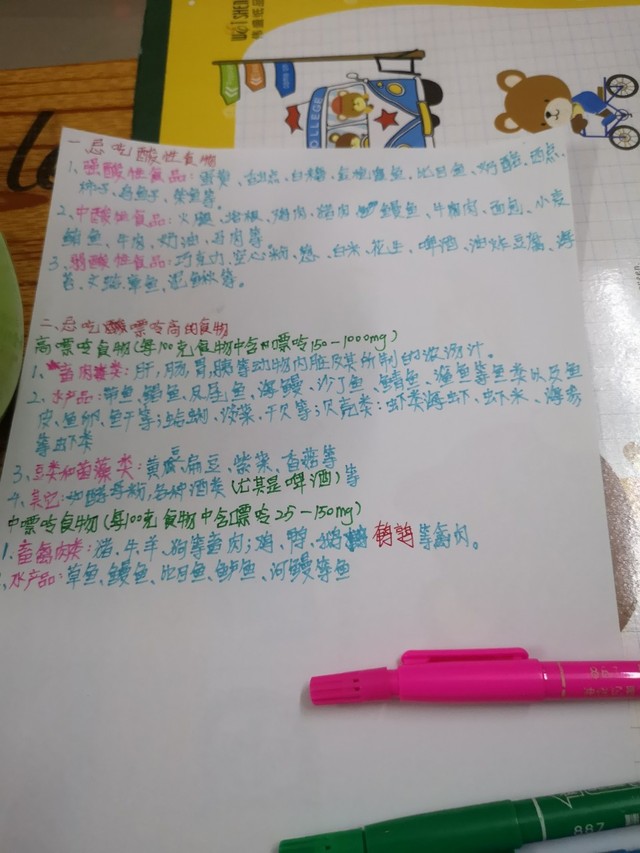 WEI SHENG
伟盛纸品
COLLEGE
一忌吃酸性食物
1、强酸性食品：蛋黄、白糖、金枪鱼、比目鱼、奶酪、西点、
柿子、乌鱼子、柴鱼等。
2、中酸性食品：火腿、培根、鸡肉、猪肉、鳗鱼、牛肉、面包、小麦
鲔鱼、牛肉、奶油、马肉等
3、弱酸性食品：巧克力、空心粉、葱、白米、花生、啤酒、油炸豆腐、海
苔、文蛤、章鱼、泥鳅等。
二、忌吃酸嘌呤高的食物
高嘌呤食物(每100克食物中含嘌呤150-1000mg)
1、畜肉类：肝、肠、胃、脑等动物内脏及其所制的浓汤汁。
2、水产品：带鱼、鲳鱼及鱼、海鳗、沙丁鱼、鲭鱼、渔鱼等鱼类以及鱼
皮、鱼卵、鱼干等；蛤蜊、淡菜、干贝等；次壳类：虾类海虾、虾米、海参
等虾类
3、豆类和菌藻类：黄豆、扁豆、紫菜、香菇等
4、其它：如酵母粉，各种酒类(尤其是啤酒)等
中嘌呤食物(每100克食物中含嘌呤25-150mg)
1、畜禽肉类：猪、牛、羊、狗等畜肉；鸡、鸭、鹅、鹌鹑等禽肉。
2、水产品：草鱼、鳗鱼、比目鱼、鲈鱼、河鳗等鱼
887